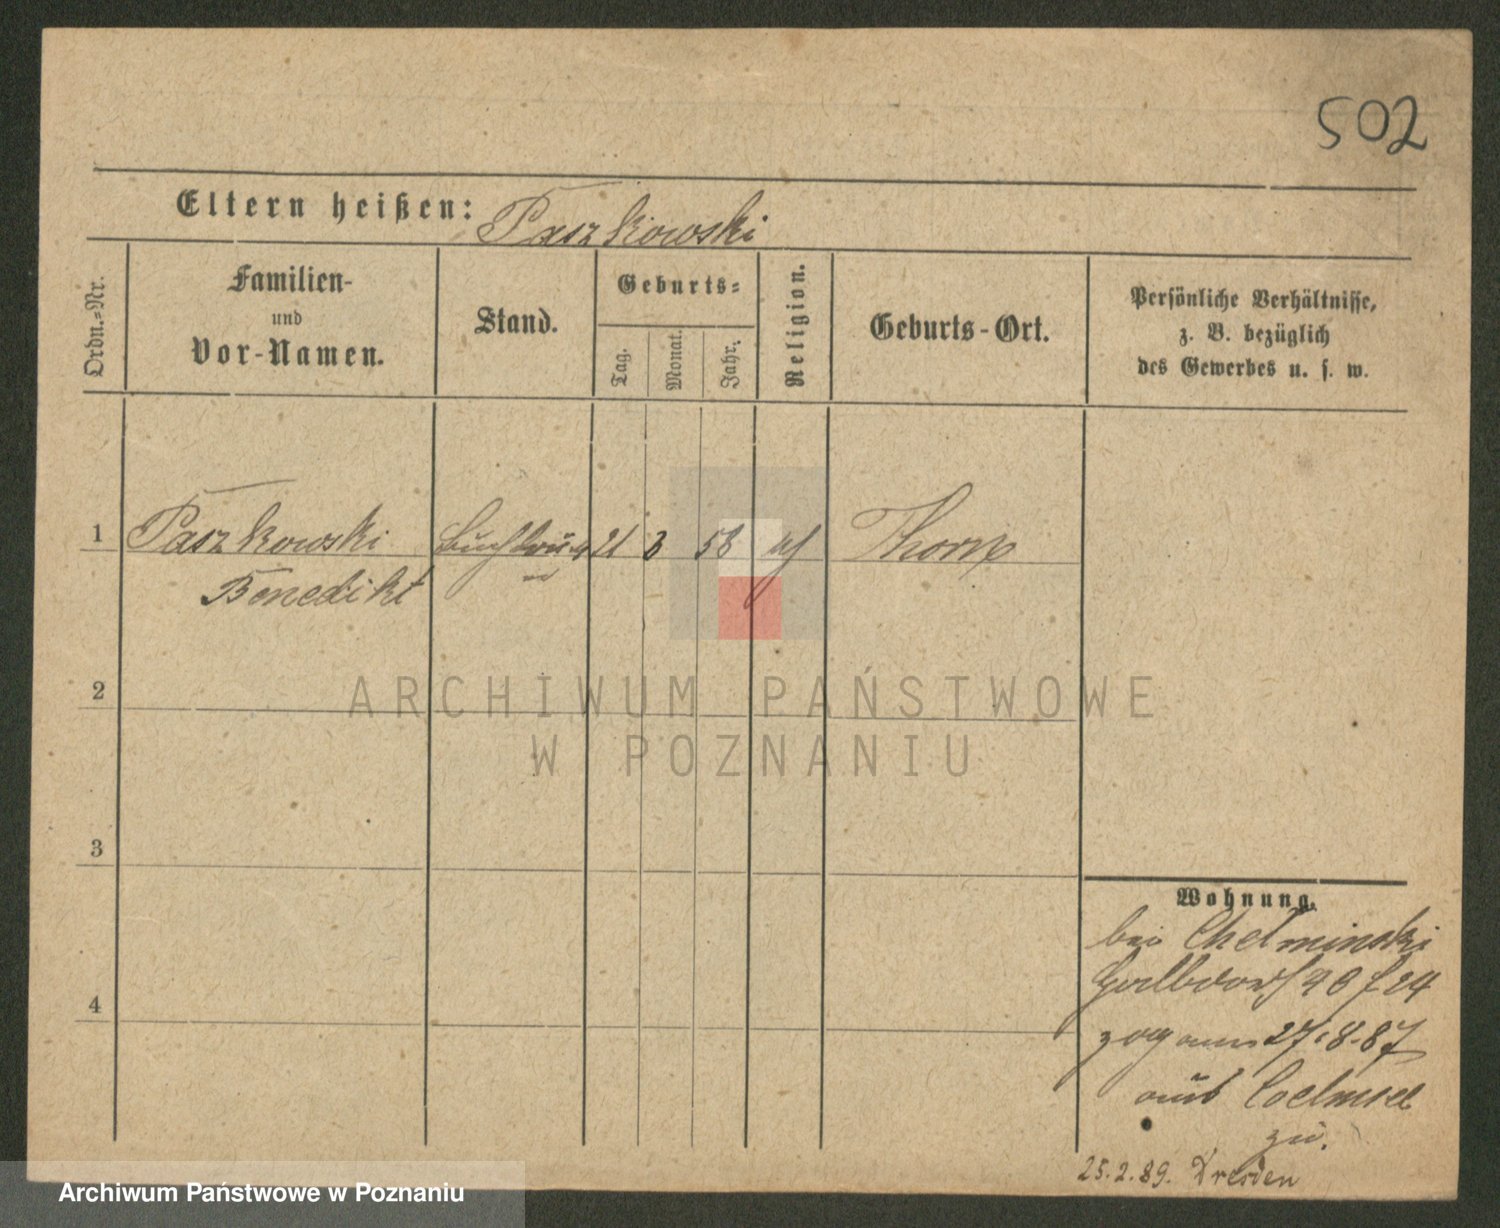 502
Eltern heißen: Paszkowski
Ordn.-Nr.
Familien-
und
Vor-Namen.
Stand.
Geburts-
Tag.
Monat.
Jahr.
Religion.
Geburts-Ort.
Persönliche Verhältnisse,
z. B. bezüglich
des Gewerbes u. s. w.
1 Paszkowski 21 3 58 Thorn
Benedikt
2
ARCHIWUM PAŃSTWOWE
W POZNANIU
3
4
Wohnung.
bei Chelminski
Halbdorf
zog am 27.8.87
aus Coelmsee
zu.
25.2.89. Dresden
Archiwum Państwowe w Poznaniu